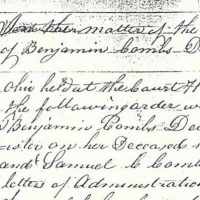 In the matter of the
of Benjamin Combs De
Ohio held at the Court H
the following order w
Benjamin Combs Dec
on her Deceased
and Samuel C Comb
letters of Administration